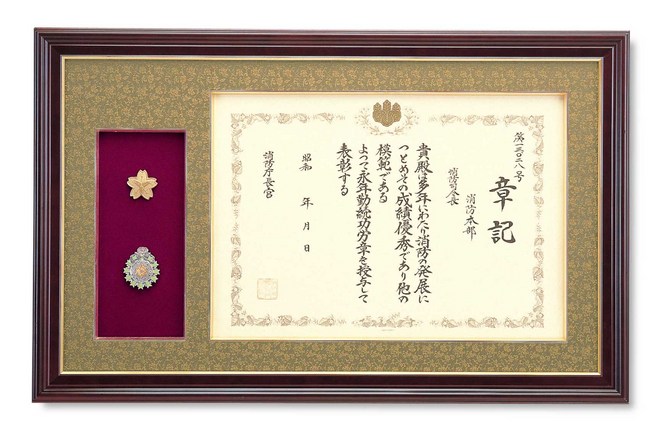 第一三〇二八号
章記
消防本部
消防司令長
貴殿は多年にわたり消防の発展に
つとめその成績優秀であり他の
模範である
よつて永年勤続功労章を授与して
表彰する
昭和　年　月　日
消防庁長官